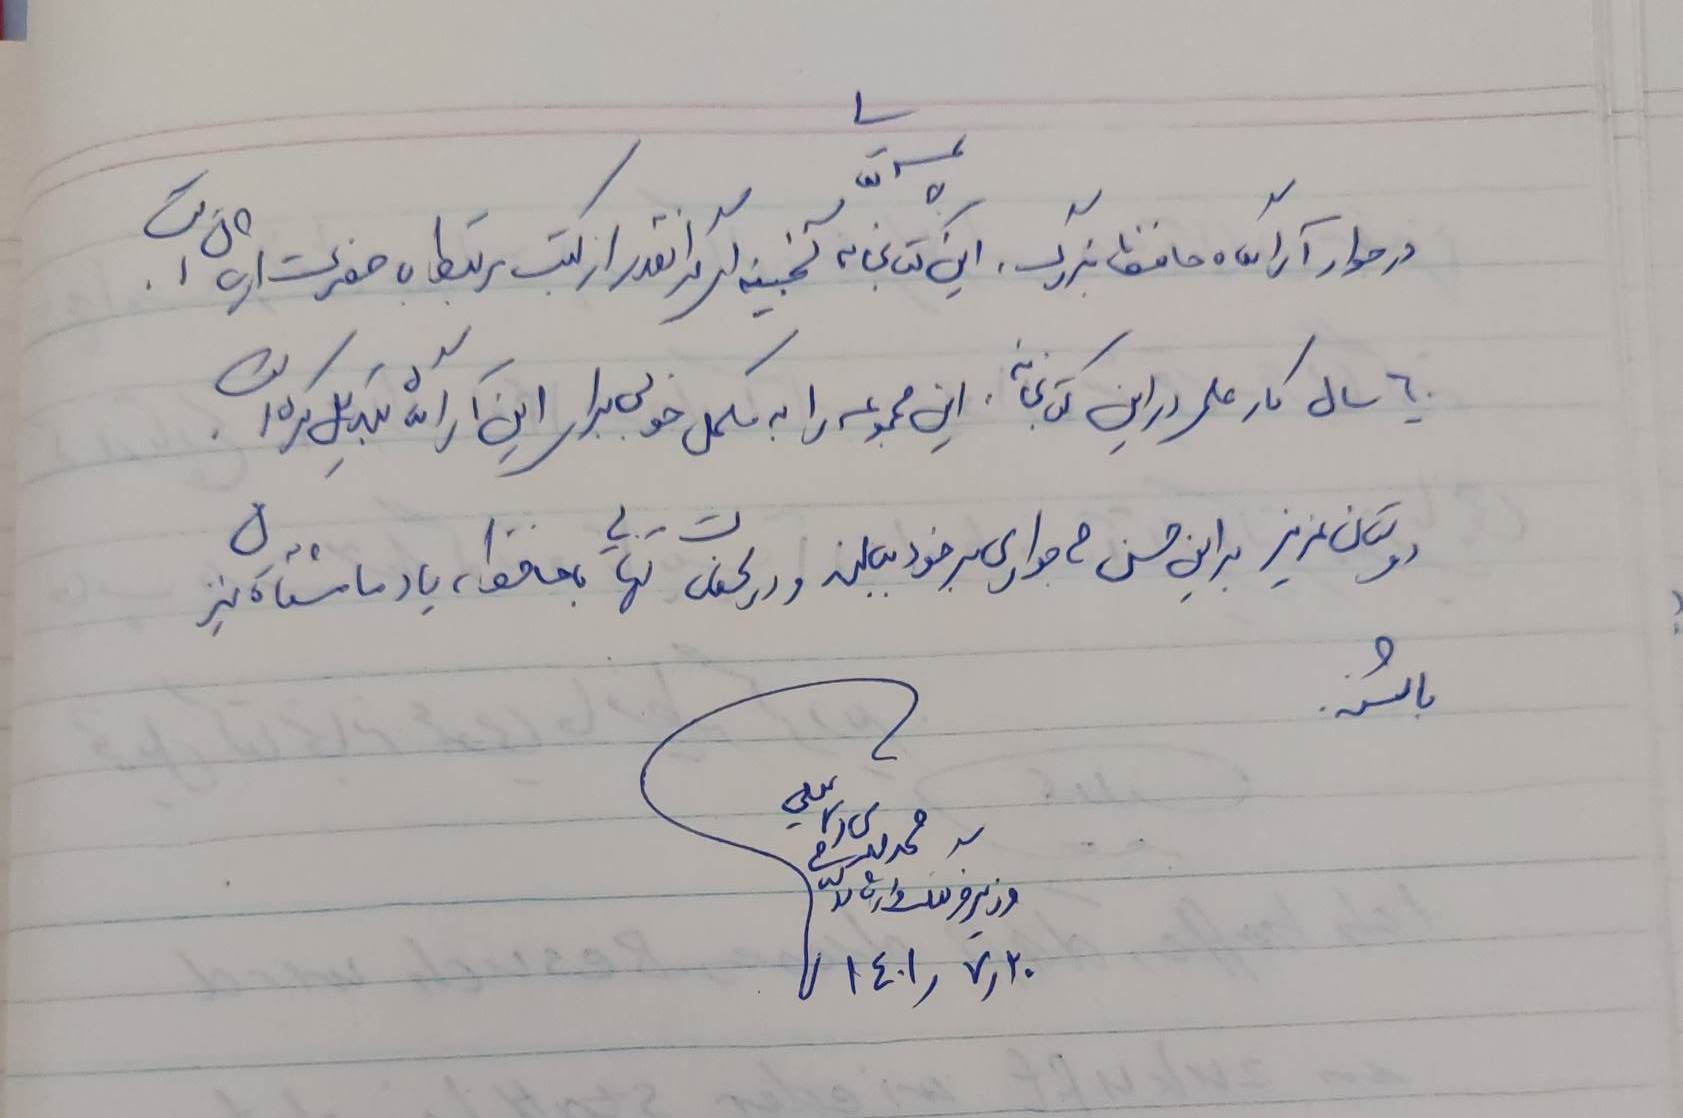 بسمه تعالی
در جوار آرامگاه حافظ بزرگ، این کتابخانه گنجینه‌ای گرانقدر از کتب مرتبط با حضرت ایشان است.
۶۰ سال کار علمی در این کتابخانه، این مجموعه را به مکمل خوبی برای این آرامگاه تبدیل کرده است.
دوستان عزیز بر این حسن هم جواری بر خود ببالند و در لحظات تنهایی با حافظ، یاد ما مشتاقان نیز
باشند.
محمد مهدی اسماعیلی
وزیر فرهنگ و ارشاد اسلامی
۱۴۰۱ر۷ر۲۰